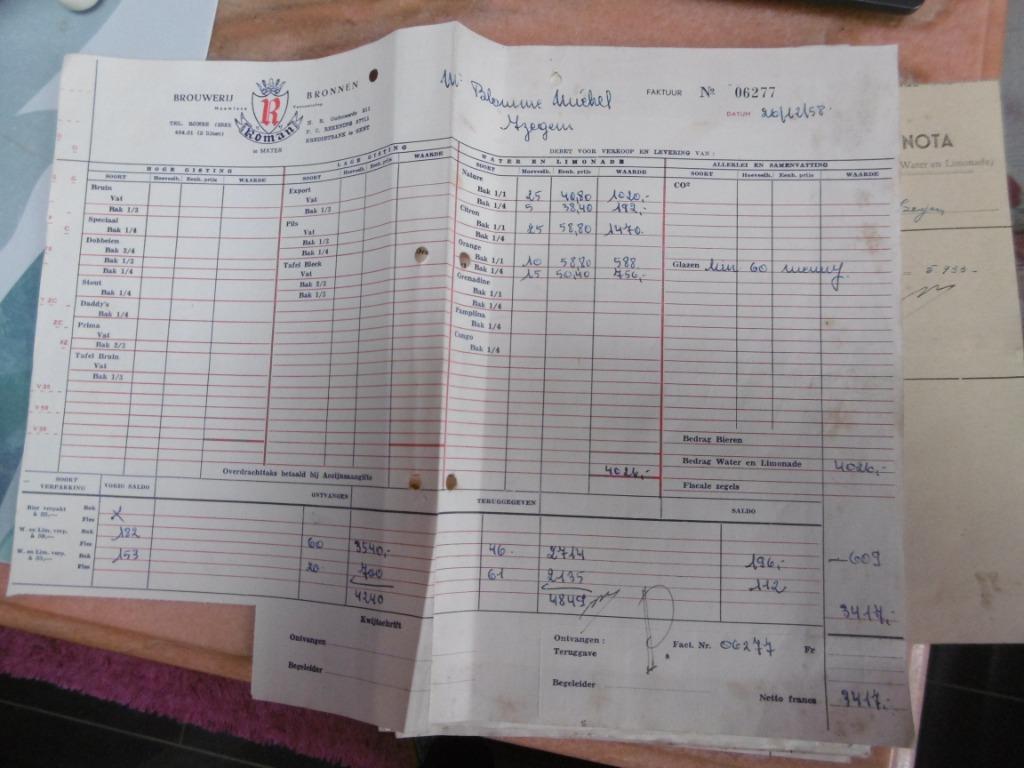 BROUWERIJ BRONNEN
Naamloze Vennootschap
Roman
te MATER
H. R. Oudenaarde 211
KREDIETBANK te GENT
Mr Blomme Michel
Yzegem
FAKTUUR No 06277
DATUM 26/12/58
DEBET VOOR VERKOOP EN LEVERING VAN :
HOGE GISTING
LAGE GISTING
WATER EN LIMONADE
ALLERLEI EN SAMENVATTING
SOORT Hoeveelh. Eenh. prijs WAARDE
SOORT Hoeveelh. Eenh. prijs WAARDE
SOORT Hoeveelh. Eenh. prijs WAARDE
SOORT Hoeveelh. Eenh. prijs WAARDE
Bruin
Vat
Bak 1/2
Speciaal
Bak 1/4
Dobbelen
Bak 2/4
Bak 1/4
Stout
Bak 1/4
Daddy's
Bak 1/4
Prima
Vat
Bak 2/3
Tafel Bruin
Vat
Bak 1/3
Export
Vat
Bak 1/2
Pils
Vat
Bak 1/2
Bak 1/4
Tafel Bleek
Vat
Bak 2/3
Bak 1/3
Nature
Bak 1/1 25 40,80 1020,-
Bak 1/4 5 38,40 192,-
Citron
Bak 1/1 25 58,80 1470,-
Bak 1/4
Orange
Bak 1/1 10 58,80 588
Bak 1/4 15 50,40 756,-
Grenadine
Bak 1/1
Bak 1/4
Pamplina
Bak 1/4
Congo
Bak 1/4
CO²
Glazen 60
Bedrag Bieren
4026,-
Bedrag Water en Limonade 4026,-
Fiscale zegels
Overdrachttaks betaald bij Accijnsaangifte
SOORT VERPAKKING VORIG SALDO ONTVANGEN TERUGGEGEVEN SALDO
Bier verpakt Bak X
Fles
W. en Lim. verp. Bak 182
Fles 60 3540,- 46 2714 196,- —609
W. en Lim. verp. Bak 153
Fles 20 700 61 2135 112
4240 4849 3417,-
Kwijtschrift
Ontvangen
Begeleider
Ontvangen :
Teruggave
Fact. Nr. 06277 Fr
Begeleider
Netto francs 3417,-
NOTA
Water en Limonade)